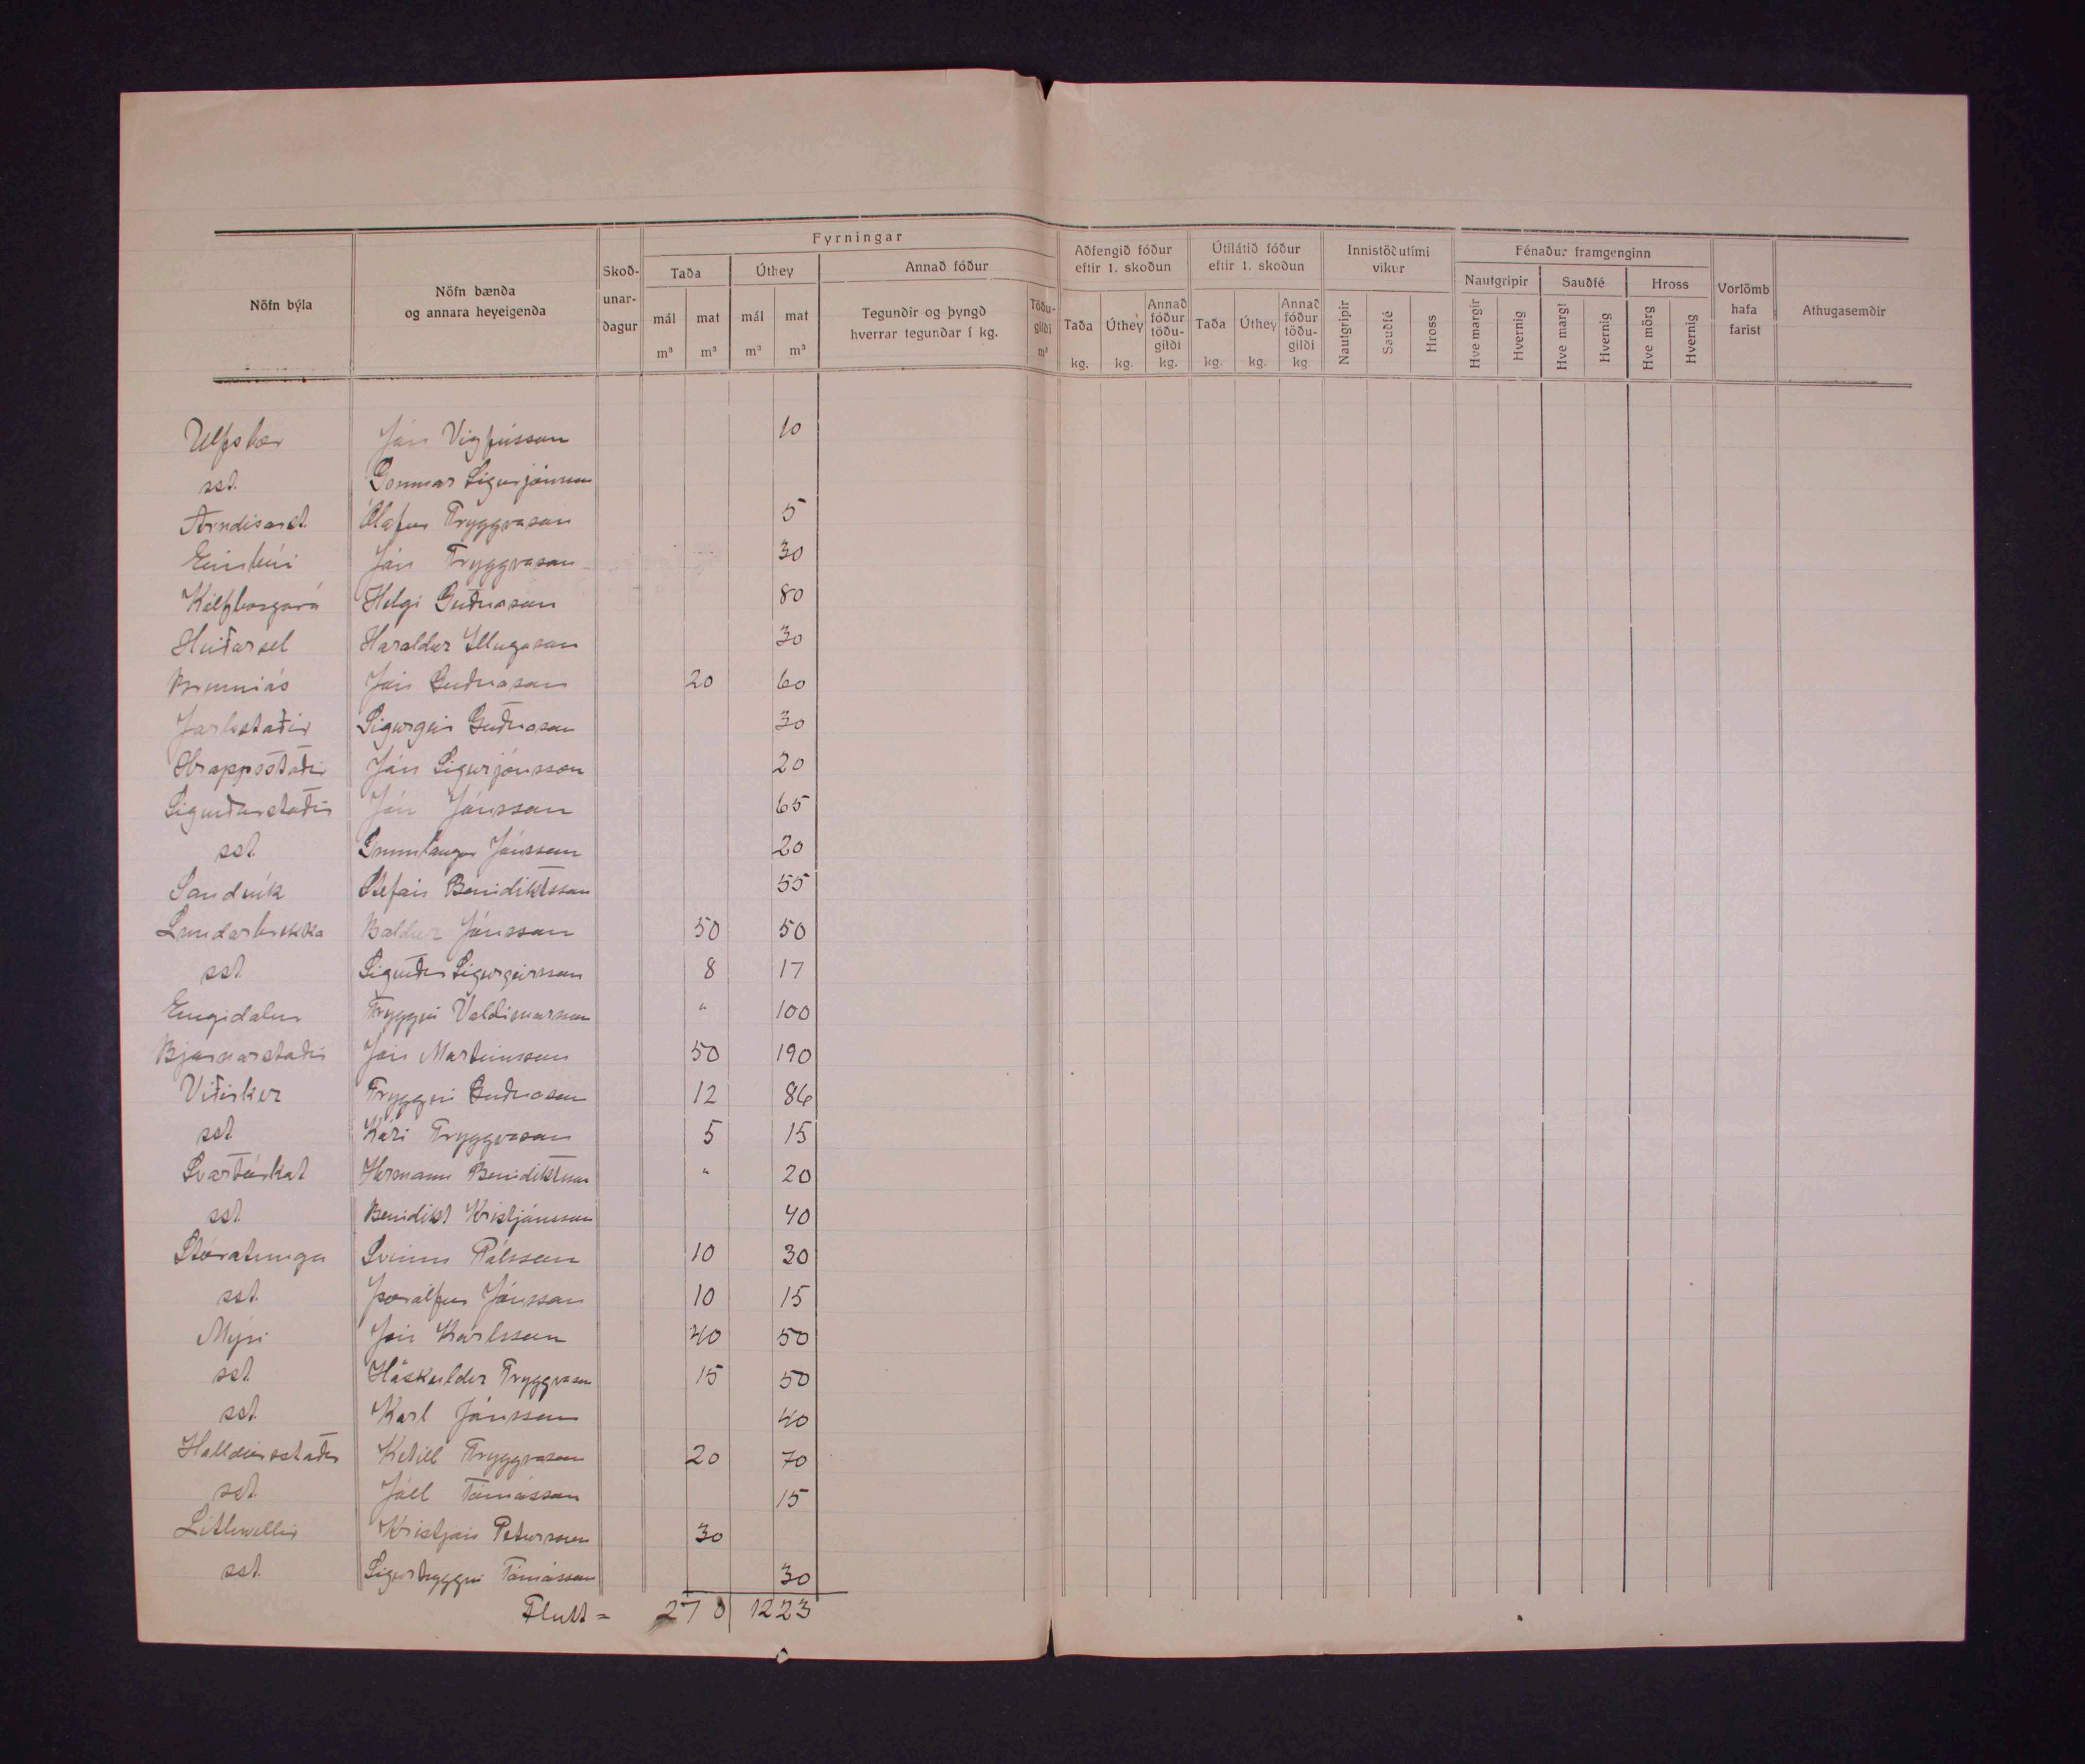 Fyrningar
Aðfengið fóður eftir 1. skoðun
Útilátið fóður eftir 1. skoðun
Innistöðutími vikur
Fénaður framgenginn
Nöfn býla
Nöfn bænda og annara heyeigenda
Skoð-unar-dagur
Taða
Úthey
Annað fóður
Nautgripir
Sauðfé
Hross
Vorlömb hafa farist
Athugasemdir
mál m³
mat m³
mál m³
mat m³
Tegundir og þyngd hverrar tegundar í kg.
Töðu-gildi m³
Taða kg.
Úthey kg.
Annað fóður töðu-gildi kg.
Taða kg.
Úthey kg.
Annað fóður töðu-gildi kg.
Nautgripir
Sauðfé
Hross
Hve margir
Hvernig
Hve margt
Hvernig
Hve mörg
Hvernig
Úlfsbær Jón Vigfússon 10
sst. Gunnar Sigurjónsson
Arndísarst. Ólafur Tryggvason 5
Einbúi Jón Tryggvason 30
Kálfborgará Helgi Guðnason 80
Heiðarsel Haraldur Illugason 30
Brunnás Jón Guðnason 20 60
Jarlstaðir Sigurgeir Guðnason 30
Hrappsstaðir Jón Sigurjónsson 20
Sigurðarstaðir Jón Jónsson 65
sst. Gunnlaugur Jónsson 20
Sandvík Stefán Benidiktsson 55
Lundarbrekka Baldur Jónsson 50 50
sst Sigurður Sigurgeirsson 8 17
Engidalur Tryggvi Valdimarsson " 100
Bjarnarstaðir Jón Marteinsson 50 190
Víðirker Tryggvi Guðnason 12 86
sst Kári Tryggvason 5 15
Svartárkot Hermann Benidiktsson " 20
sst. Benidikt Kristjánsson 40
Stóratunga Sveinn Pálsson 10 30
sst. Þórólfur Jónsson 10 15
Mýri Jón Karlsson 40 50
sst. Höskuldur Tryggvason 15 50
sst. Karl Jónsson 40
Halldórsstaðir Ketill Tryggvason 20 70
sst. Páll Tómasson 15
Litluvellir Kristján Pétursson 30
sst. Sigurtryggvi Tómasson 30
Flutt = 270 1223